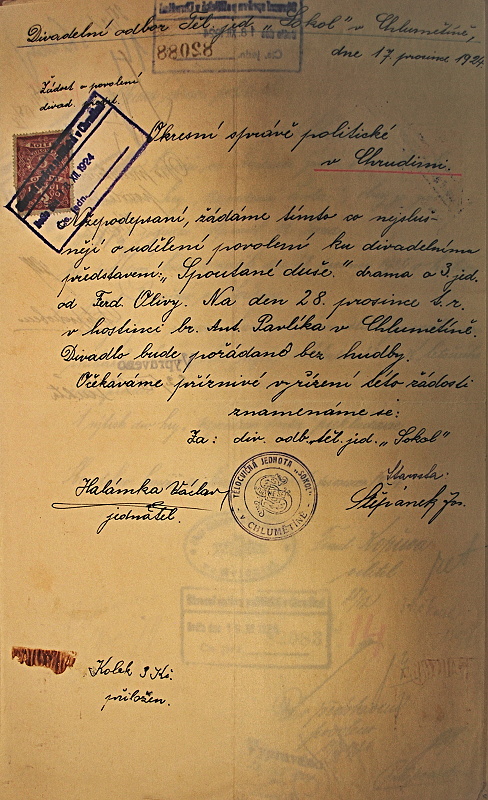 Divadelní odbor Těl. jed. „Sokol" v Chlumětíně,
dne 17. prosince 1924
Žádost o povolení
divad.
88083
XII. 1924
Okresní správě politické
v Chrudimi.
Nížepodepsaní, žádáme tímto co nejsluš-
něji o udělení povolení ku divadelnímu
představení: „Spoutané duše." drama o 3. jed.
od Ferd. Olivy. Na den 28. prosince t. r.
v hostinci br. Ant. Pavlíka v Chlumětíně.
Divadlo bude pořádano bez hudby.
Očekávame příznivé vyřízení této žádosti
znamenáme se:
Za: div. odb. těl. jed. „Sokol"
Halámka Václav
jednatel.
TĚLOCVIČNÁ JEDNOTA „SOKOL"
V CHLUMĚTÍNĚ
Starosta:
Štěpánek Jos.
Kolek 3 Kč.
přiložen.